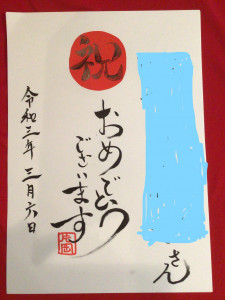 さん
祝
おめでとう
ございます
令和三年三月六日